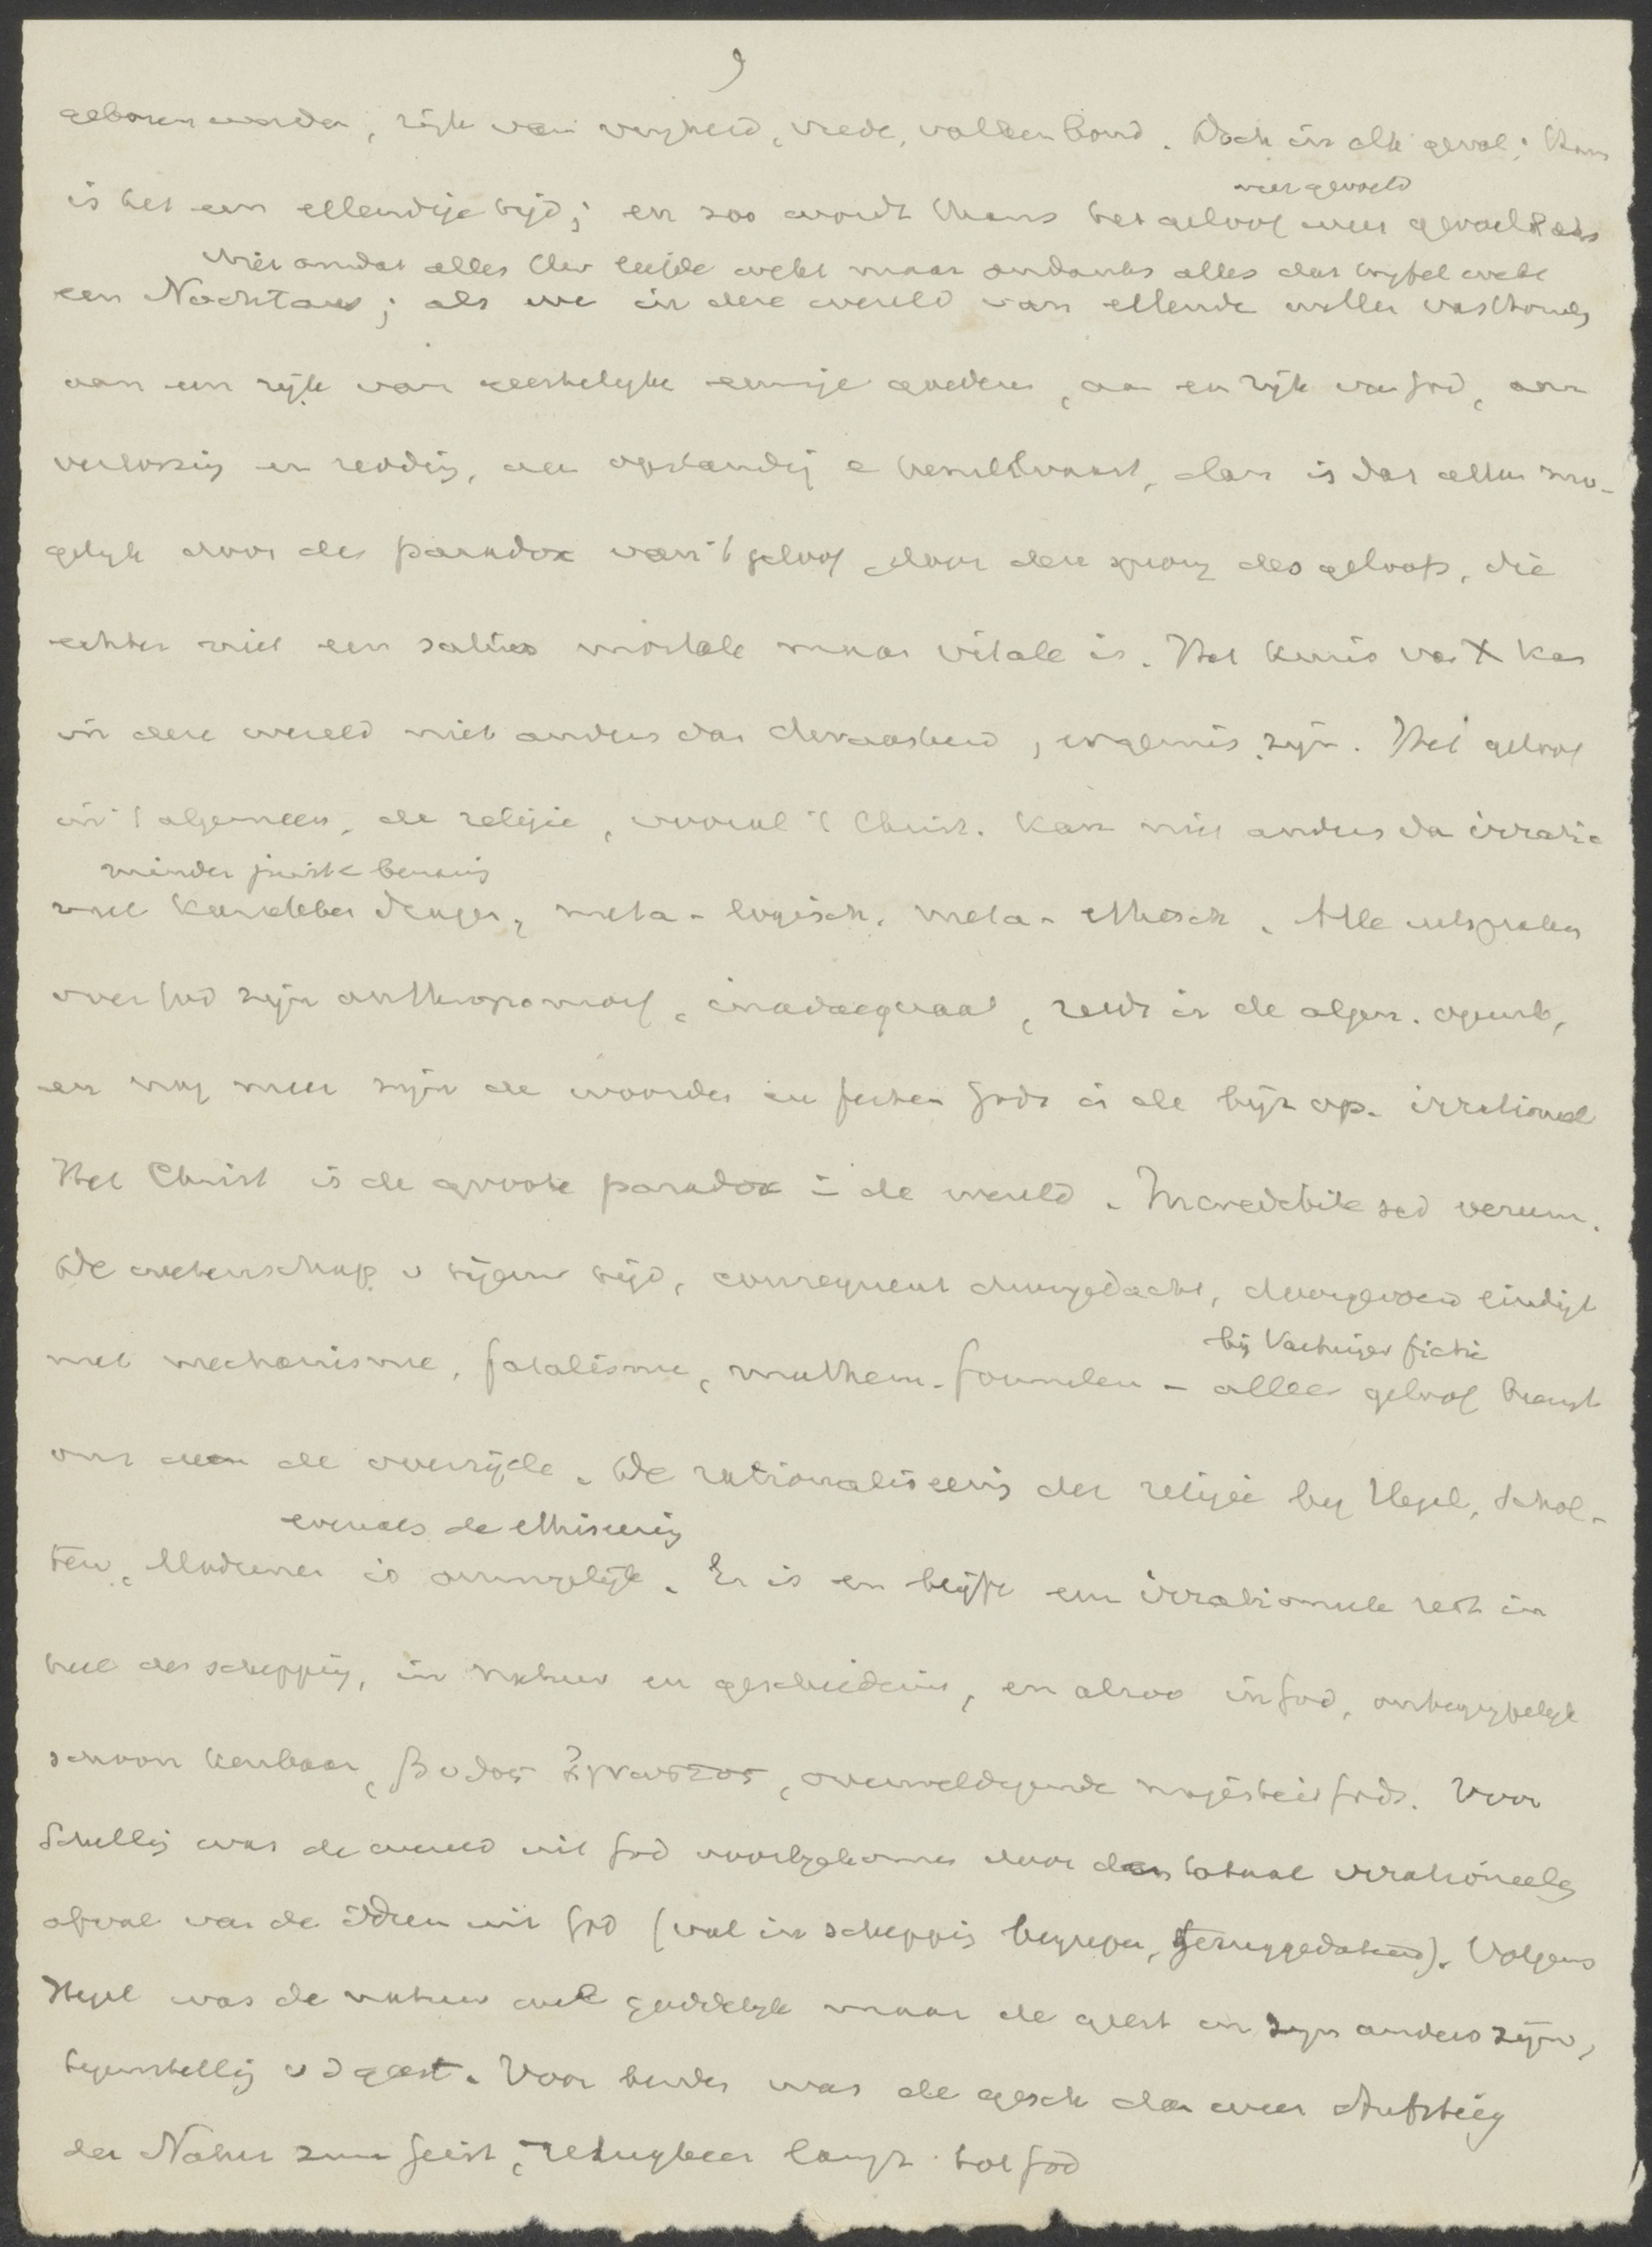 9
geboren worden, rijk van vrijheid, vrede, volkenbond. Doch in elk geval; thans
weer gevoeld
is het een ellendige tijd; en zoo wordt thans het geloof weer gevoeld als
niet omdat alles der liefde wekt maar ondanks alles dat twijfel wekt
een Nochtans; als we in deze wereld van ellende willen vasthouden
aan een rijk van geestelijke eeuwige goederen, aan een rijk van God, aan
verlossing en redding, aan opstanding e hemelvaart, dan is dat alleen mo-
gelijk door de paradox van 't geloof door den sprong des geloofs, die
echter niet een saltus mortale maar vitale is. Het kruis van X kan
in deze wereld niet anders dan dwaasheid, ergernis zijn. Het geloof
in 't algemeen, de religie, vooral 't Christ. kan niet anders dan irratio
minder juist
neel dragen, meta-logisch, meta-ethisch. Alle uitspraken
over God zijn anthropomorf, inadaequaat, reeds in de algem. openb,
en nog meer zijn de woorden en feiten Gods in de bijz op. irrationeel
Het Christ is de groote paradox in de wereld. Incredibile sed verum.
De wetenschap v tegenw tijd, consequent doorgedacht, doorgevoerd eindigt
bij Vaihinger fictie
met mechanisme, fatalisme, mathem. formulen - alleen geloof brengt
ons aan de overzijde. De rationaliseering der religie bij Hegel, Schol-
evenals de ethiseering
ten, Modernen is onmogelijk. Er is en blijft een irrationeele rest in
heel de schepping, in natuur en geschiedenis, en alzoo in God, onbegrijpelijk
schoon kenbaar, βυθος ἄγνωστος, overweldigende majesteit Gods. Voor
Schelling was de wereld uit God voortgekomen door den totaal irrationeelen
afval van de Ideen uit God (val in schepping begrepen, ). Volgens
Hegel was de natuur wel goddelijk maar de geest in zijn anders zijn,
tegenstelling v d geest. Voor beiden was de gesch dan weer Aufstieg
der Natur zum Geist, terugkeer langs tot God